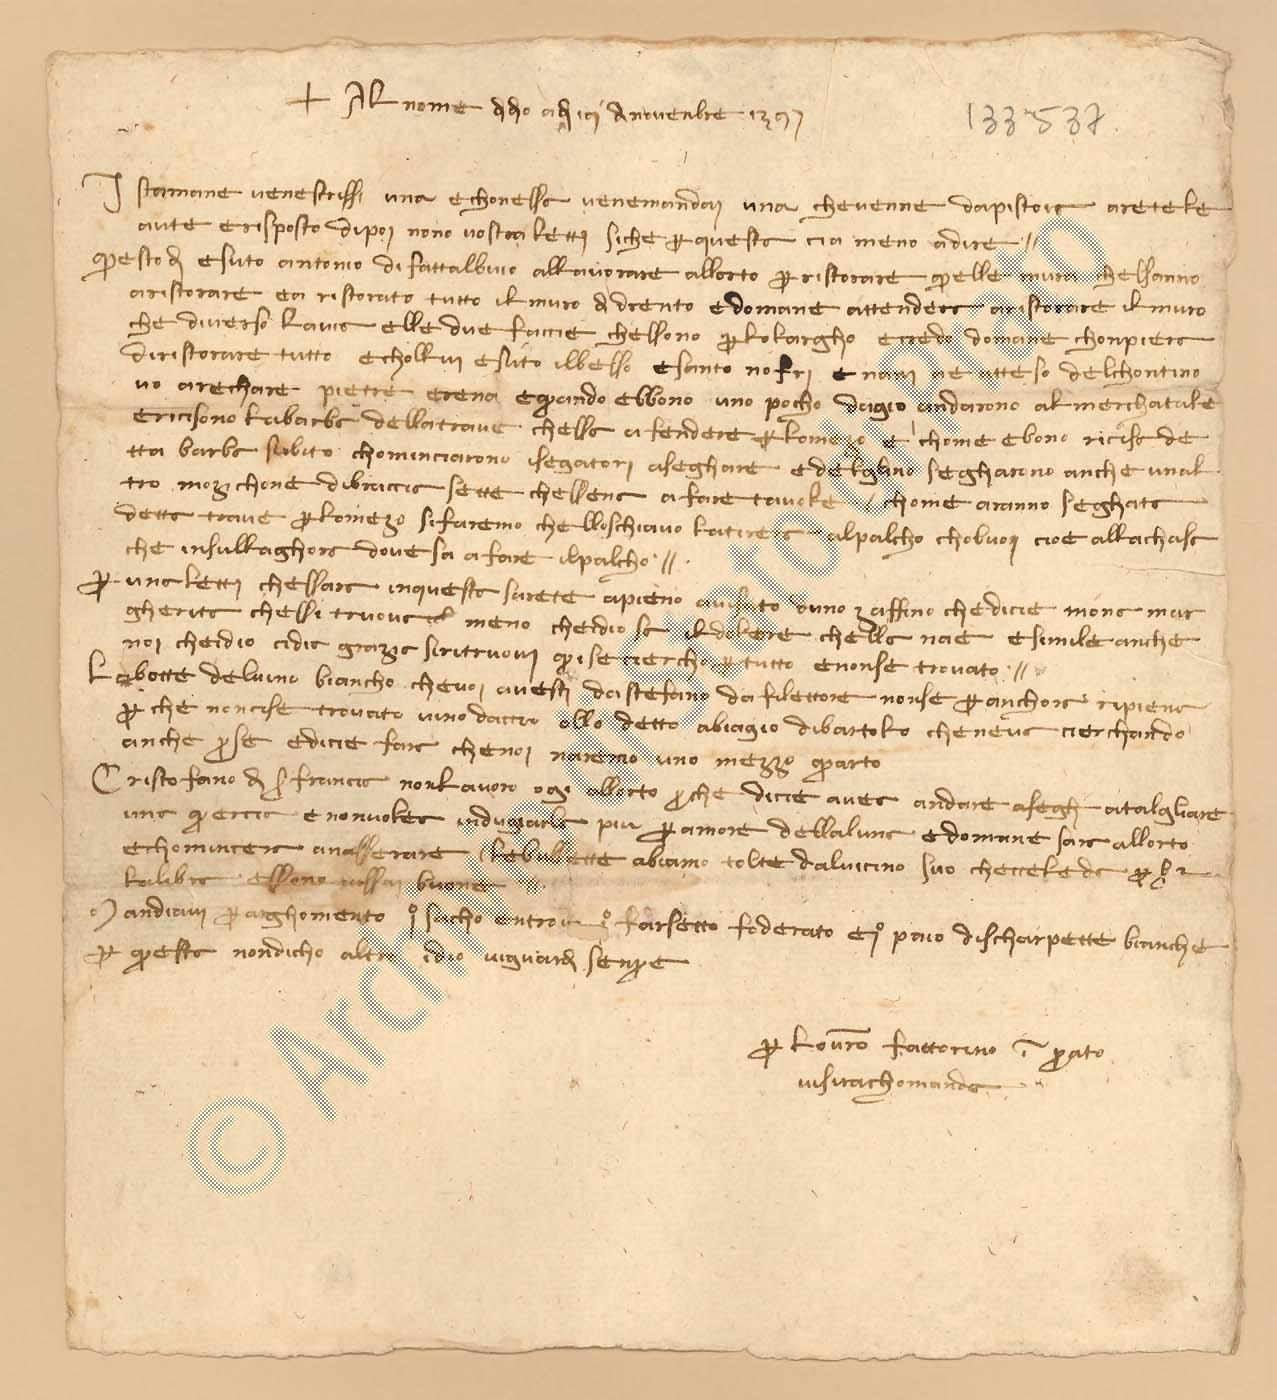 + Al nome di dio a di 19 di novenbre 1397
133537
Istamane vene scrissi una e chon essa ve ne mandai una che venne da pistoia aretela
aute e risposto dipoi non ò vostra lettera siche per questa ci a meno a dire //
Questo dì e suto antonio di fattalbuio a llavorare all orto per ristorare quelle mura che ss anno
a ristorare e a ristorato tutto il muro di drento e domane attendera a ristorare il muro
che di verso l ava e lle due faccie che ssono per lo largho e credo domane chonpiera
di ristorare tutto e cho llui e suto il besso e santo nofri e nanni ne atteso del chontino
vo a rechare pietre e rena e quando ebbono uno pocho d agio andarono al merchatale
e ricisono la barba della trave che ss a a fendere per lo mezo e chome ebono ricisa de
tta barba subito chominciarono i segatori a seghare ed eglino segharono anche un al
tro mozichone di braccia sette che ssen a a fare tavole / chome aranno seghata
detta trave per lo mezo si faremo che llo schiavo la tirera al palcho cho buoi cioe alla chasa
che in sulla ghora dove s a a fare il palcho //
Per una lettera che ssara in questa sarete a pieno avisato d uno zaffino che dicie mona mar
gherita che ssi truova meno che idio sa il dolere che lla n ae e simile anche
noi che idio ci dia grazia si ritruovi qui se ciercho per tutto e non se trovato //
La botte del vino biancho che voi avesti da stefano da filettole non se per anchora ripiena
per che non ci se trovato vino da ccio ollo detto a biagio di bartolo che neva cierchando
anche per se e dicie fara che noi n aremo uno mezzo quarto
Cristofano di ser francio non lavoro ogi all orto per che dicie avea andare a segh a talgliare
una quercia e non volea indugiarla piu per amore della luna e domane sara all orto
e chomincera a naserrare / le bullette abiamo tolte dal vicino suo che cce le da per s 2
la libra e ssono assai buone //
Mandiavi per arghomento 1° sacho entrovi 1° farsetto foderato e 1° paio di scharpette bianche
per questa non dicho altro idio vi guardi senpre
per lorenzo fattorino in prato
vi si rachomanda
© Archivio di Stato di Prato